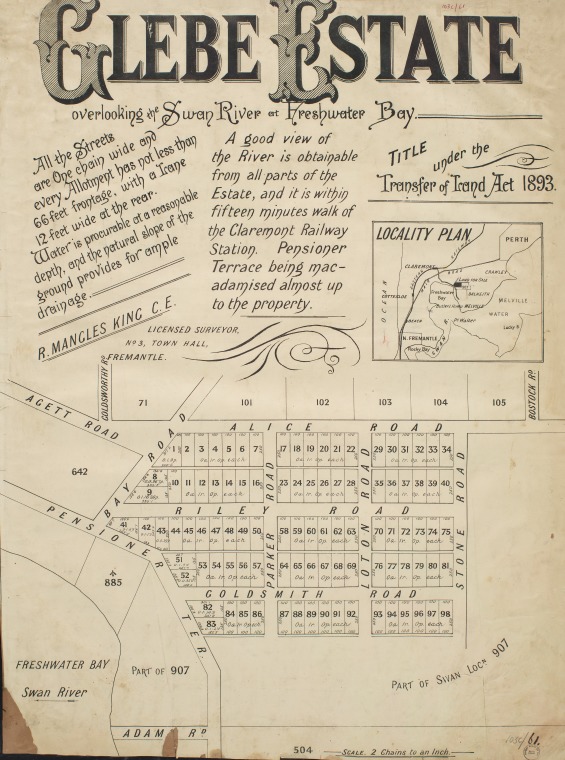 GLEBE ESTATE
overlooking the Swan River at Freshwater Bay.
All the Streets
are One chain wide and
every Allotment has not less than
66 feet frontage, with a Lane
12 feet wide at the rear.
Water is procurable at a reasonable
depth, and the natural slope of the
ground provides for ample
drainage.
R. MANGLES KING C.E.
LICENSED SURVEYOR,
No 3, TOWN HALL,
FREMANTLE.
A good view of
the River is obtainable
from all parts of the
Estate, and it is within
fifteen minutes walk of
the Claremont Railway
Station. Pensioner
Terrace being mac-
adamised almost up
to the property.
TITLE under the
Transfer of Land Act 1893.
LOCALITY PLAN
PERTH
CLAREMONT
CRAWLEY
Freshwater
Bay
DALKEITH
COTTESLOE
MELVILLE
WATER
OCEAN
Pt Walter
N. FREMANTLE
Rocky Bay
GOLDSWORTHY RD
BOSTOCK RD
71 101 102 103 104 105
AGETT ROAD
ALICE ROAD
BAY ROAD
642
1 2 3 4 5 6 7 17 18 19 20 21 22 29 30 31 32 33 34
8
9 10 11 12 13 14 15 16 23 24 25 26 27 28 35 36 37 38 39 40
RILEY ROAD
PENSIONER TER.
PARKER ROAD
LOTON ROAD
STONE ROAD
41 42 43 44 45 46 47 48 49 50 58 59 60 61 62 63 70 71 72 73 74 75
51
52 53 54 55 56 57 64 65 66 67 68 69 76 77 78 79 80 81
885
GOLDSMITH ROAD
82
83 84 85 86 87 88 89 90 91 92 93 94 95 96 97 98
FRESHWATER BAY
Swan River
PART OF 907
PART OF SWAN LOCN 907
ADAM RD
504
SCALE. 2 Chains to an Inch.
61.